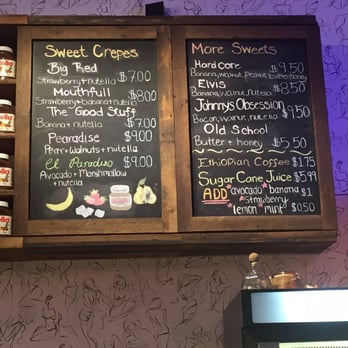 Sweet Crepes
Big Red
Strawberry + nutella $7.00
Mouthfull
Strawberry + banana + nutella $8.00
The Good Stuff
Banana + nutella $7.00
Pearadise $9.00
Pear + Walnuts + nutella
El Paradiso $9.00
Avocado + Marshmallow
+ nutella
More Sweets
Hardcore $9.50
Banana, walnut, Peanut butter, honey
Elvis $8.50
Banana, walnut, Nutella
Johnny's Obsession $9.50
Bacon, walnut, nutella
Old School
Butter + honey $5.50
Ethiopian Coffee $1.75
Sugar Cane Juice $5.99
ADD avocado banana $1
strawberry
lemon mint $0.50
nutella
nutella